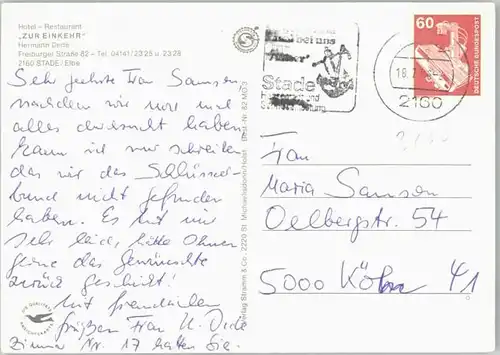 Hotel – Restaurant
„ZUR EINKEHR"
Hermann
Freiburger Straße 82 – Tel. 04141/2325 u. 2328
2160 STADE/Elbe
Sehr geehrte Frau Samson
nachdem wir nun und
alles durchsucht haben
kann ich nur schreiben
das wir das Schlüssel-
bund nicht gefunden
haben. Es tut mir
sehr leid, hätte Ihnen
gerne das Gewünschte
zurück geschickt!
Mit freundlichen
Grüßen Frau
Zimmer Nr. 17 hatten Sie.
bei uns
Stade
und
60
DEUTSCHE BUNDESPOST
2160
Frau
Maria Samson
Oelbergstr. 54
5000 Köln 41
Verlag Stramm & Co., 2220 St. Michaelisdonn/Holst. Best.-Nr. 82